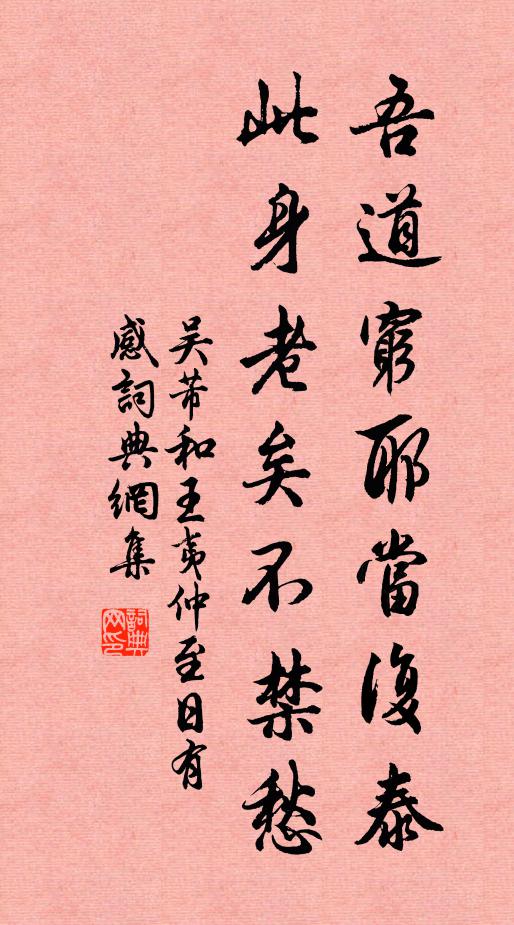 吾道窮耶當復泰
此身老矣不禁愁
吳芾和王夷仲至日有
感詞典網集
詞典
網印